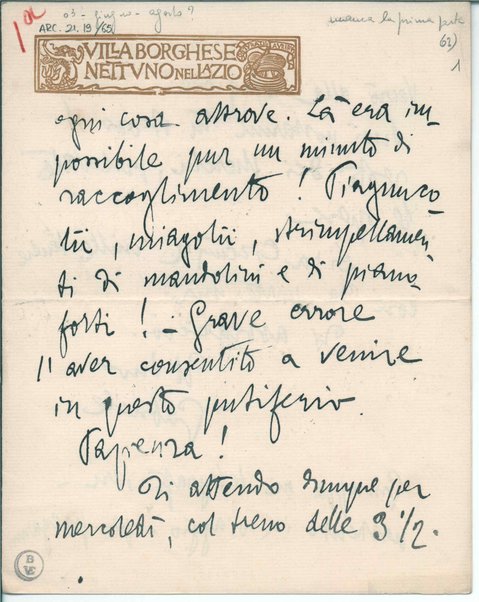 1a
03 - giugno - agosto ?
manca la prima parte
ARC. 21. 19 /65)
62)
1
VILLA BORGHESE
NETTVNO NEL LAZIO
ogni cosa altrove. Là era im-
possibile pur un minuto di
raccoglimento! Piagnuco-
lii, miagolii, strimpellamen-
ti di mandolini e di piano-
forti! - Grave errore
l'aver consentito a venire
in questo putiferio.
Pazienza!
Ti attendo dunque per
mercoledì, col treno delle 3 1/2.
B
VE